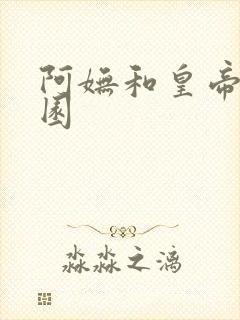 阿妩和皇帝
园
淼淼之漓